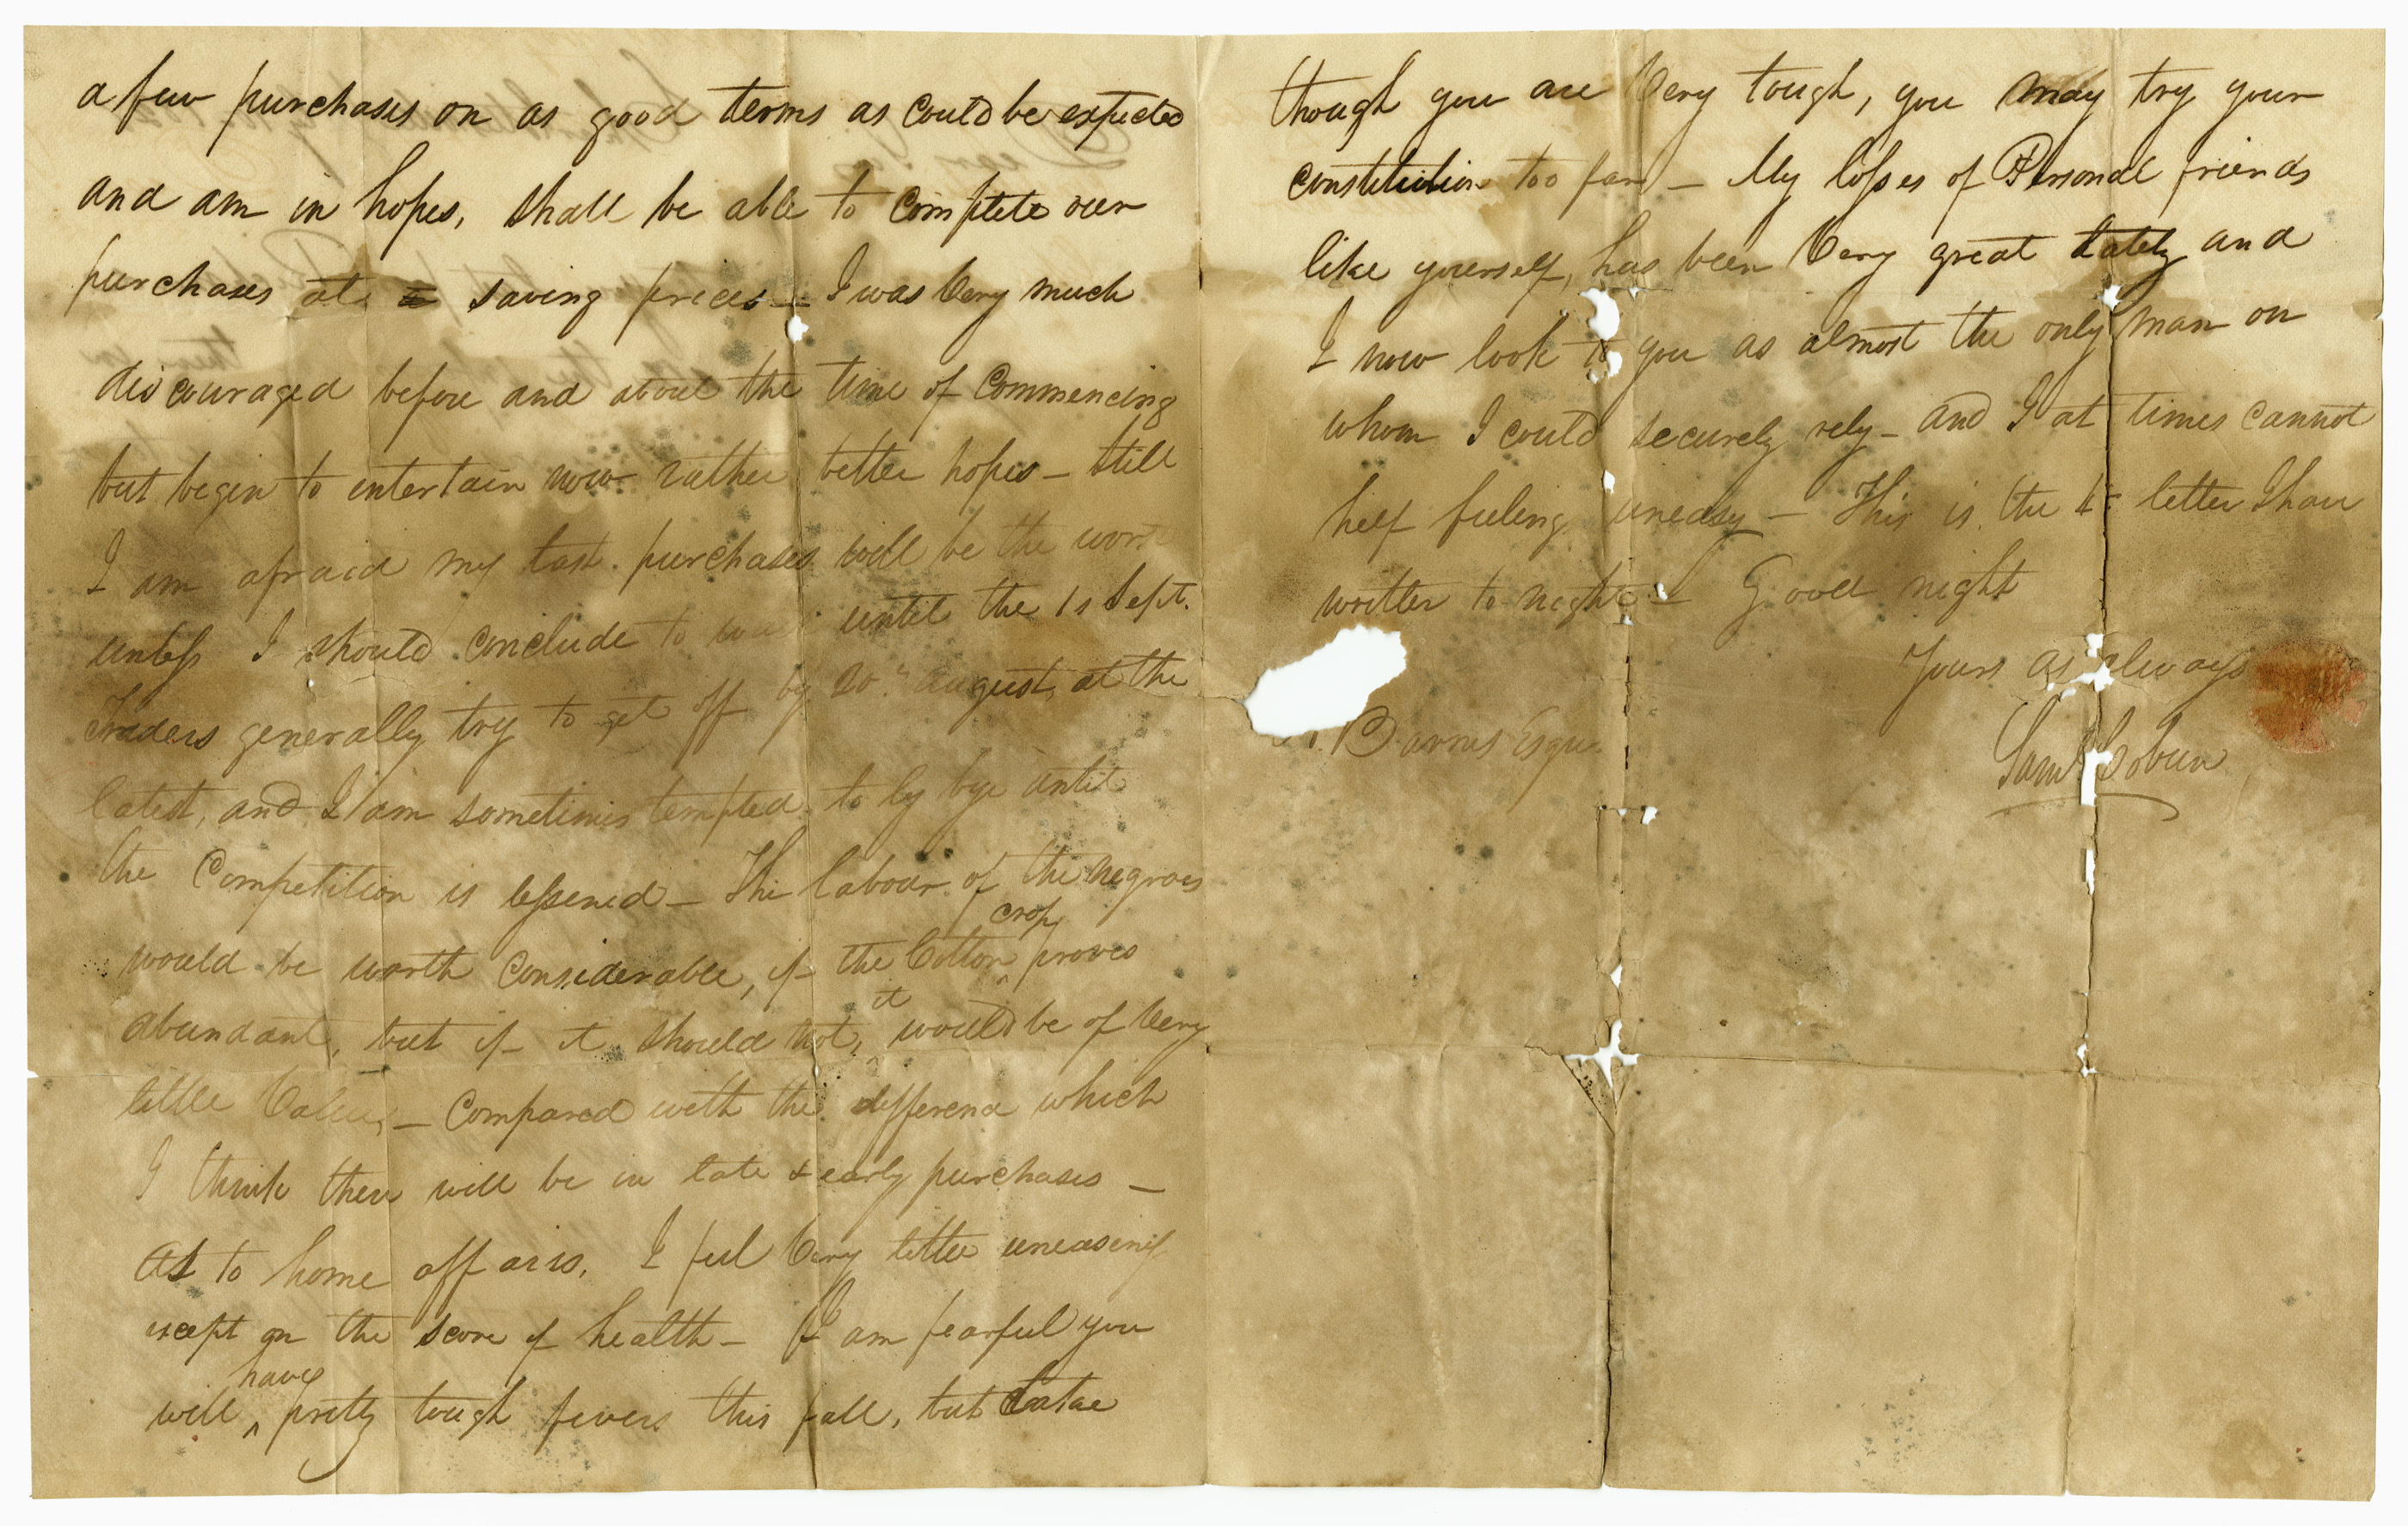 a few purchases on as good terms as could be expected
and am in hopes, shall be able to complete our
purchases at saving prices — I was very much
discouraged before and about the time of commencing
but begin to entertain now rather better hopes — still
I am afraid my last purchases will be the worst
unless I should conclude to wait until the 1s Sept.
Traders generally try to get off by 20th august, at the
latest, and I am sometimes tempted to ly bye until
the Competition is lessened — The labour of the negroes
would be worth considerable, if the Cotton crop proves
abundant, but if it should not, it would be of very
little Value, — compared with the difference which
I think there will be in late & early purchases —
As to home affairs, I feel very little uneasiness
except on the score of health — I am fearful you
will have pretty tough fevers this fall, but
though you are very tough, you may try your
constitution too far — My losses of Personal friends
like yourself, has been very great lately and
I now look to you as almost the only man on
whom I could securely rely — and I at times cannot
help feeling uneasy — This is the letter I have
written to night — Good night
Yours as always
Saml Cobun
Barnes Esqr